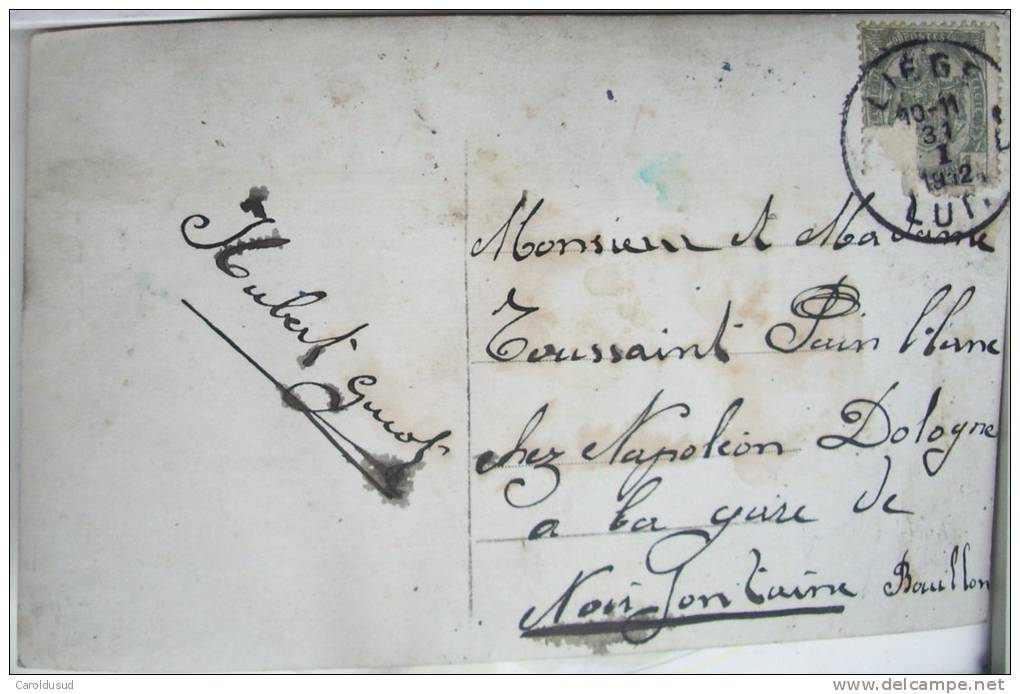 Hubert Guiot
Monsieur & Madame
Toussaint Pain blanc
chez Napoléon Dologne
a la gare de
Noir Fontaine Bouillon
POSTES
LIÈGE
10-11
31
I
1912
LUI
Caroldusud
delcampe.net